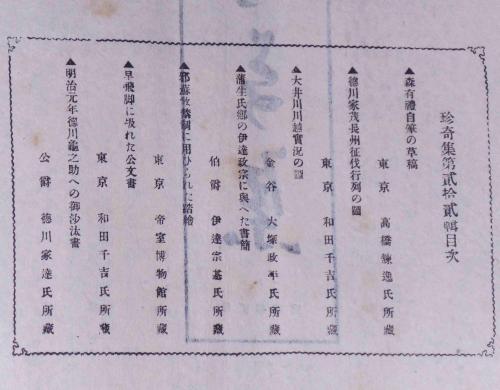 珍奇集第貳拾貳輯目次
▲森有禮自筆の草稿
東京 高橋鍊逸氏所藏
▲德川家茂長州征伐行列の圖
東京 和田千吉氏所藏
▲大井川川越實況の圖
金谷 大塚政平氏所藏
▲蒲生氏鄕の伊達政宗に與へた書簡
伯爵 伊達宗基氏所藏
▲邪蘇敎禁制に用ひられた踏繪
東京 帝室博物館所藏
▲早飛脚に扱れた公文書
東京 和田千吉氏所藏
▲明治元年德川龜之助への御沙汰書
公爵 德川家達氏所藏